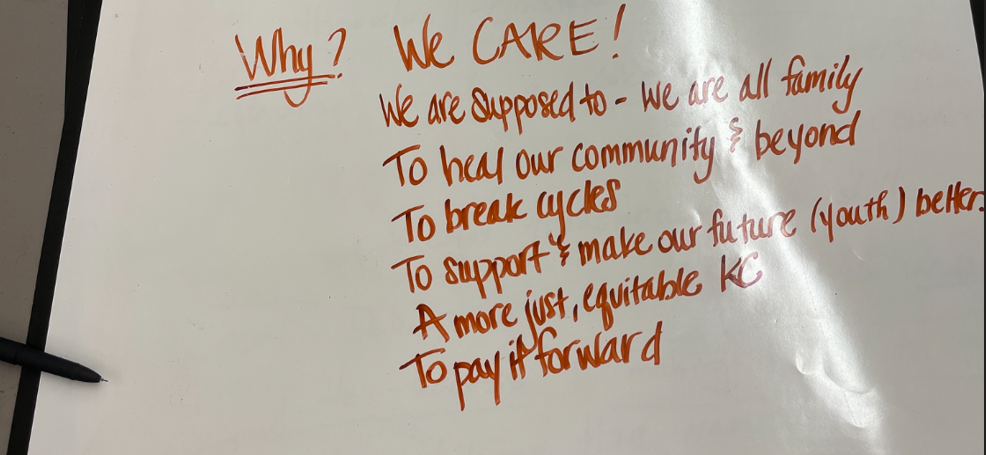 Why? We CARE!
We are supposed to - we are all family
To heal our community & beyond
To break cycles
To support & make our future (youth) better.
A more just, equitable KC
To pay it forward